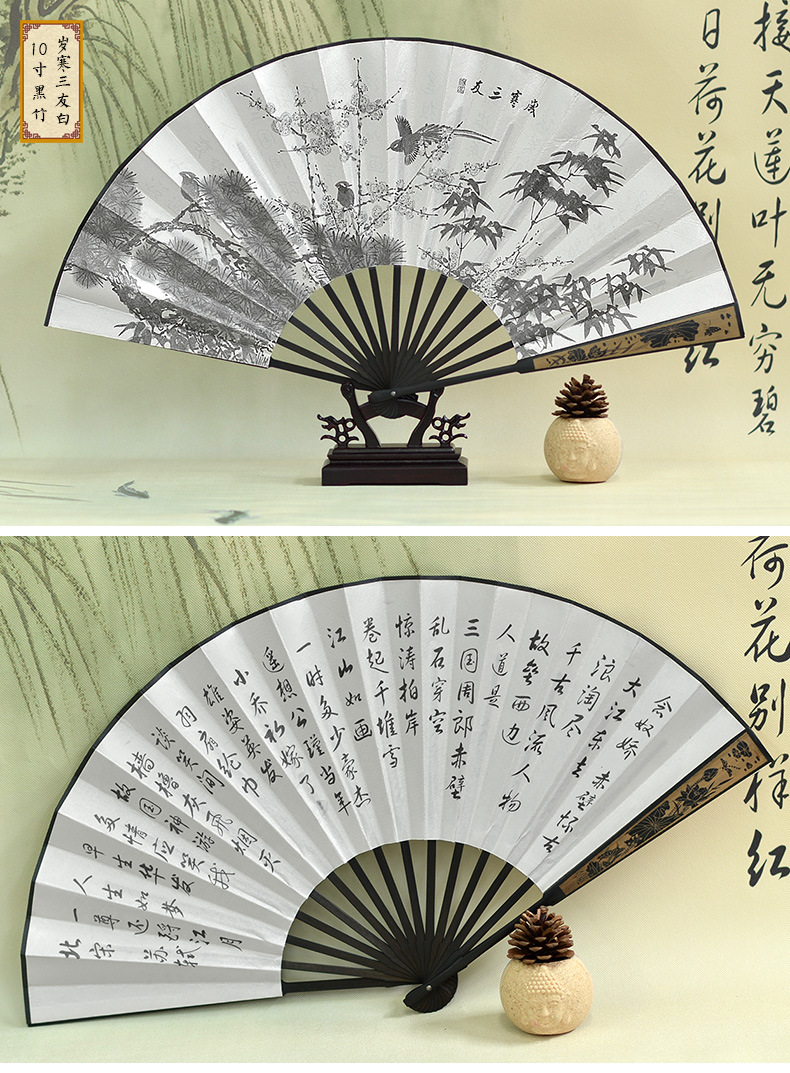 岁寒三友白
10寸黑竹
歲寒三友
接天莲叶无穷碧
日荷花别红
念奴娇 赤壁怀古
大江东去
浪淘尽
千古风流人物
故垒西边
人道是
三国周郎赤壁
乱石穿空
惊涛拍岸
卷起千堆雪
江山如画
一时多少豪杰
遥想公瑾当年
小乔初嫁了
雄姿英发
羽扇纶巾
谈笑间
樯橹灰飞烟灭
故国神游
多情应笑我
早生华发
人生如梦
一尊还酹江月
北宋 苏轼
荷花别样红